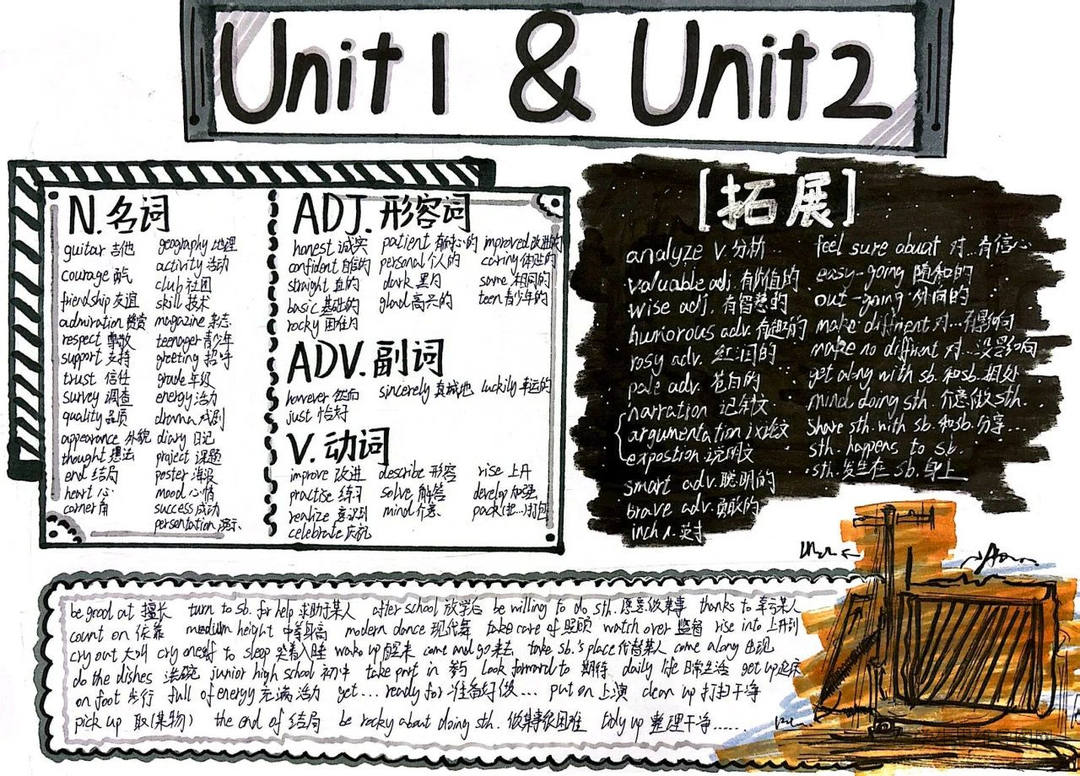 Unit1 & Unit2
N.名词
guitar 吉他
courage 勇气
friendship 友谊
admiration 赞赏
respect 尊敬
support 支持
trust 信任
survey 调查
quality 品质
appearance 外貌
thought 想法
end 结局
heart 心
corner 角
geography 地理
activity 活动
club 社团
skill 技术
magazine 杂志
teenager 青少年
greeting 招呼
grade 年级
energy 活力
drama 戏剧
diary 日记
project 课题
poster 海报
mood 心情
success 成功
persentation 演示
ADJ.形容词
honest 诚实 patient 有耐心的 improved 改进的
confident 自信的 personal 个人的 caring 体贴的
straight 直的 dark 黑月 same 相同的
basic 基础的 glad 高兴的 teen 青少年的
rocky 困难的
ADV.副词
however 然而 sincerely 真诚地 luckily 幸运的
just 恰好
V.动词
improve 改进 describe 形容 rise 上升
practise 练习 solve 解答 develop 加强
realize 意识到 mind 介意 pack(把…)打包
celebrate 庆祝
[拓展]
analyze v.分析
valuable adj.有价值的
wise adj.有智慧的
humorous adv.有趣的
rosy adv.红润的
pale adv.苍白的
narration 记叙文
argumentation 议论文
expostion 说明文
smart adv.聪明的
brave adv.勇敢的
inch n.英寸
feel sure abuat 对…有信心
easy-going 随和的
out-going 外向的
make diffrent 对…有影响
make no diffrent 对…没影响
get along with sb.和sb.相处
mind doing sth.介意做sth.
share sth.with sb.和sb.分享…
sth. happens to sb.
sth.发生在sb.身上
be good at 擅长 turn to sb. for help 求助于某人 after school 放学后 be willing to do sth.愿意做某事 thanks to 幸亏某人
count on 依靠 medium height 中等身高 modern dance 现代舞 take care of 照顾 watch over 监督 rise into 上升到
cry out 大叫 cry oneself to sleep 哭着入睡 wake up 醒来 come and go 来去 take sb.'s place 代替某人 come along 出现
do the dishes 洗碗 junior high school 初中 take part in 参与 look forward to 期待 daily life 日常生活 get up 起床
on foot 步行 full of energy 充满活力 get…ready for 准备好做… put on 上演 clean up 打扫干净
pick up 取(某物) the end of 结局 be rocky about doing sth. 做某事很困难 tidy up 整理干净……